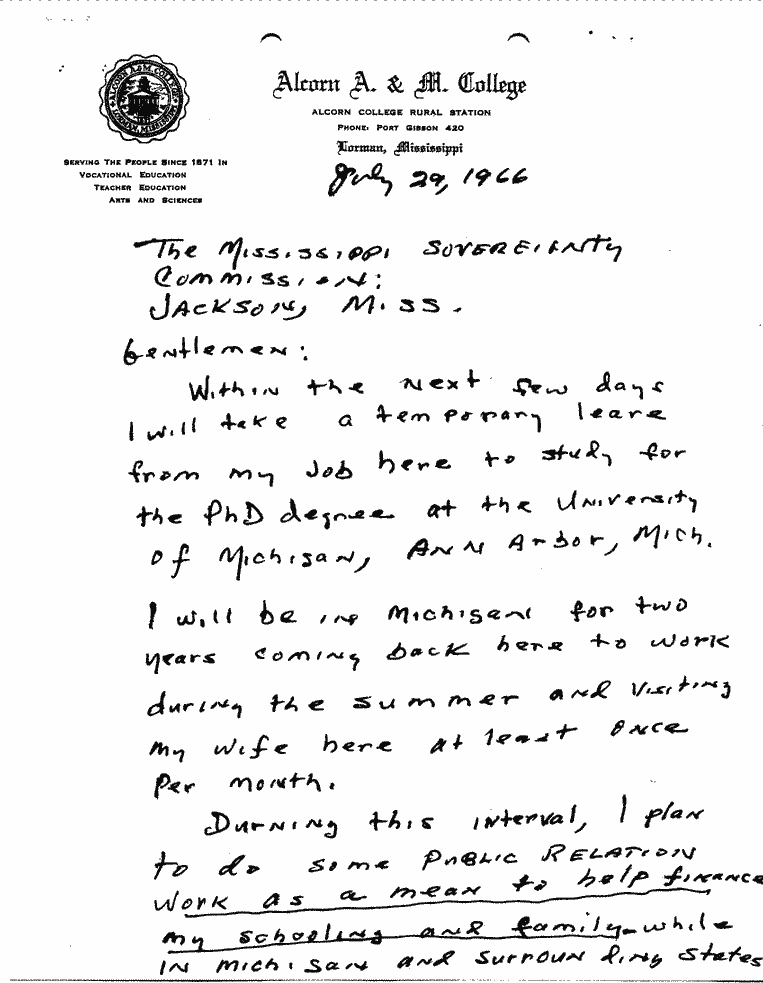 ALCORN A.&M. COLLEGE
LORMAN, MISSISSIPPI
Alcorn A. & M. College
ALCORN COLLEGE RURAL STATION
PHONE: PORT GIBSON 420
Lorman, Mississippi
SERVING THE PEOPLE SINCE 1871 IN
VOCATIONAL EDUCATION
TEACHER EDUCATION
ARTS AND SCIENCES
July 29, 1966
The Mississippi SOVEREIGNTY
Commission:
JACKSON, Miss.
Gentlemen:
Within the next few days
I will take a temporary leave
from my job here to study for
the PhD degree at the University
of Michigan, Ann Arbor, Mich.
I will be in Michigan for two
years coming back here to work
during the summer and visiting
my wife here at least once
per month.
Durning this interval, I plan
to do some PUBLIC RELATION
work as a mean to help finance
my schooling and family while
in Michigan and surrounding states